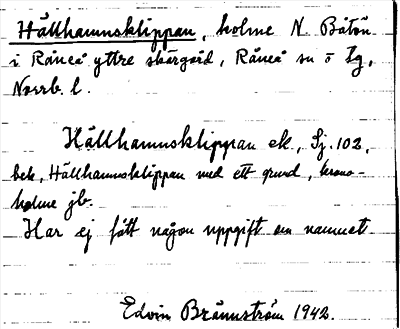 Hällhamnsklippan, holme N. Båtön
i Råneå yttre skärgård, Råneå sn o tg,
Norrb. l.
Hällhamnsklippan ek., Sj. 102,
bek, Hällhamnsklippan med ett grund, krono-
holme jb.
Har ej fått någon uppgift om namnet.
Edvin Brännström 1942.